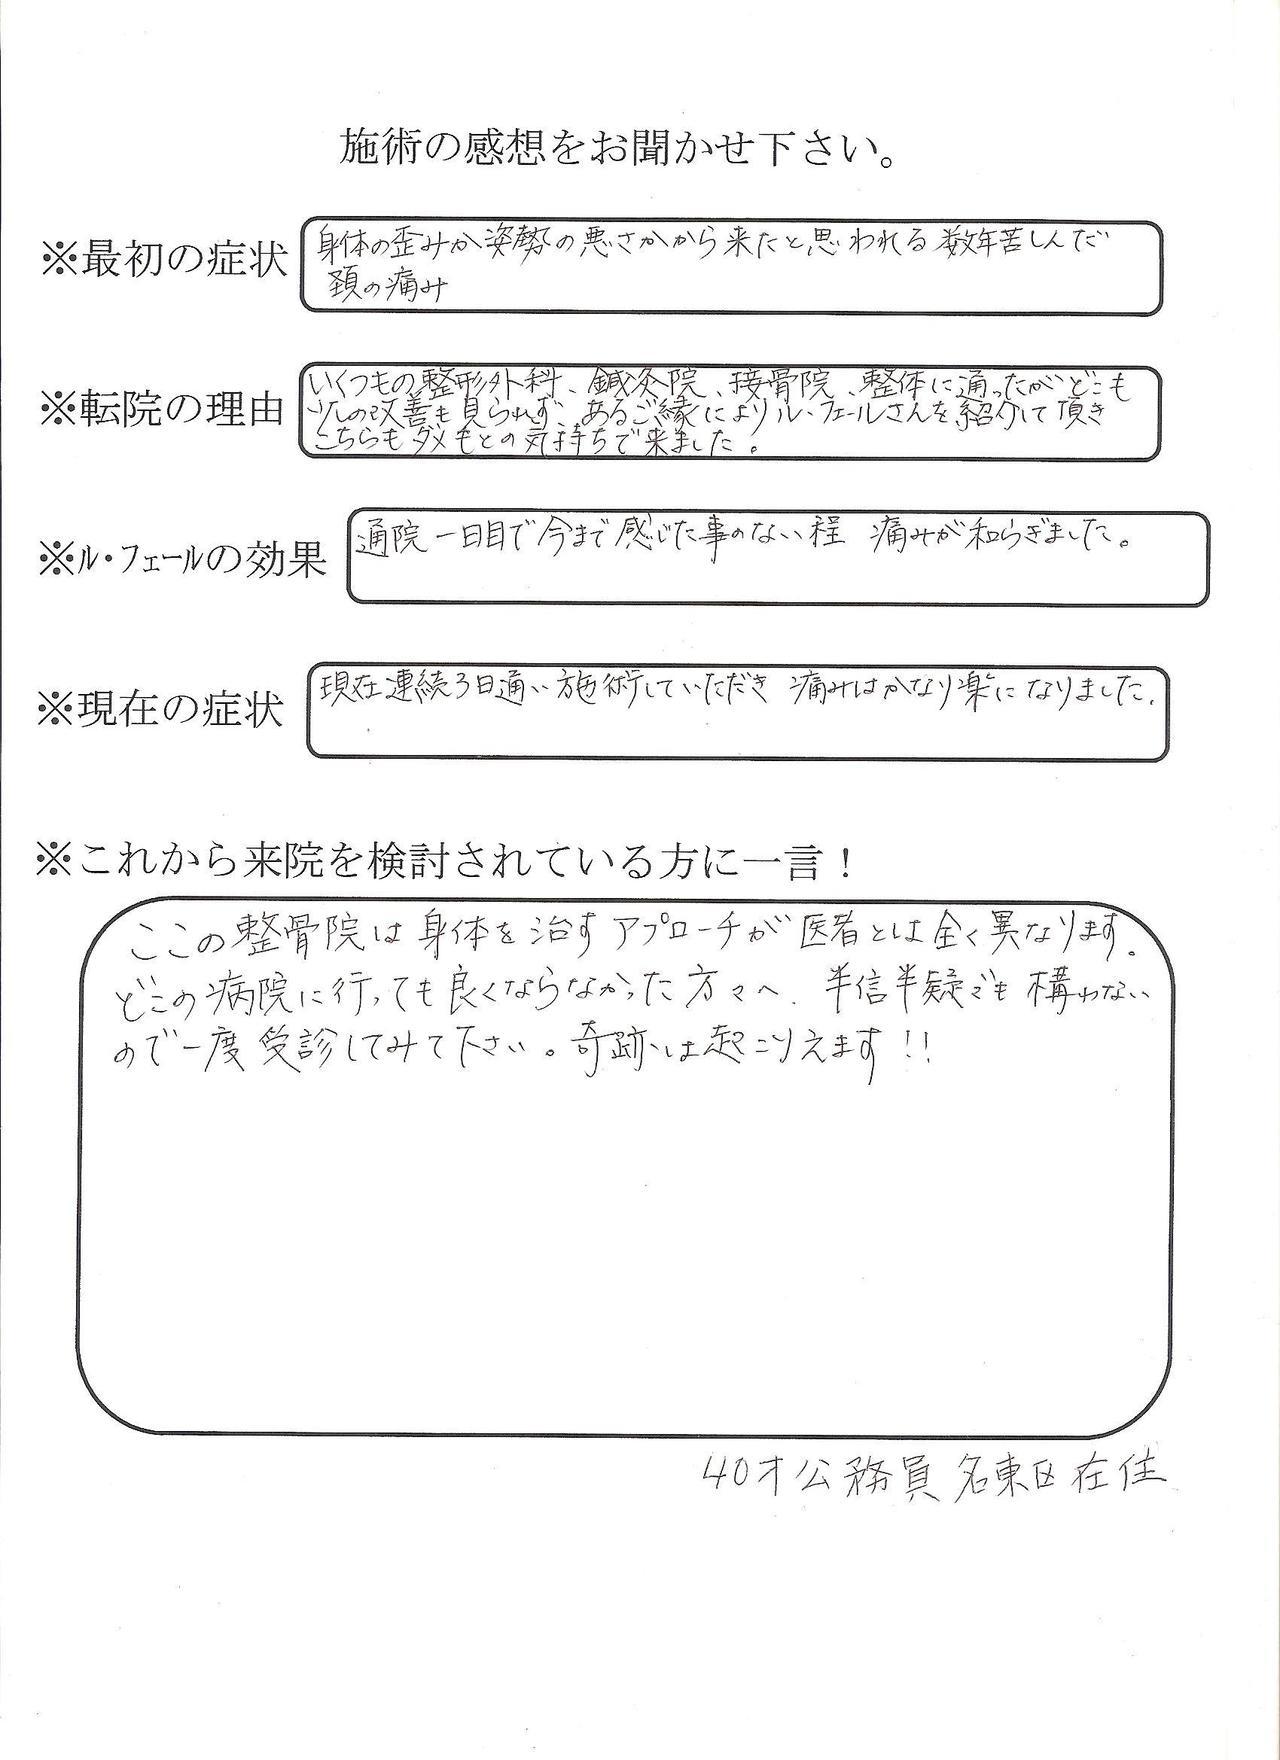 施術の感想をお聞かせ下さい。
※最初の症状
身体の歪みか姿勢の悪さかから来たと思われる数年苦しんだ
頚の痛み
※転院の理由
いくつもの整形外科、鍼灸院、接骨院、整体に通ったがどこも
少しの改善も見られず、あるご縁によりル・フェールさんを紹介して頂き
こちらもダメもとの気持ちで来ました。
※ル・フェールの効果
通院一日目で今まで感じた事のない程 痛みが和らぎました。
※現在の症状
現在連続3日通い施術していただき 痛みはかなり楽になりました.
※これから来院を検討されている方に一言！
ここの整骨院は身体を治すアプローチが医者とは全く異なります.
どこの病院に行っても良くならなかった方々へ. 半信半疑でも構わない
ので一度受診してみて下さい。奇跡は起こりえます!!
40才公務員 名東区在住